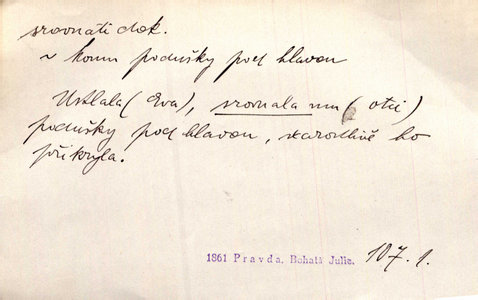 srovnati dok.
~ komu podušky pod hlavou
Ustlala (Eva), srovnala mu (otci)
podušky pod hlavou, starostlivě ho
přikryla.
1861 Pravda, Bohatá Julie. 107. 1.